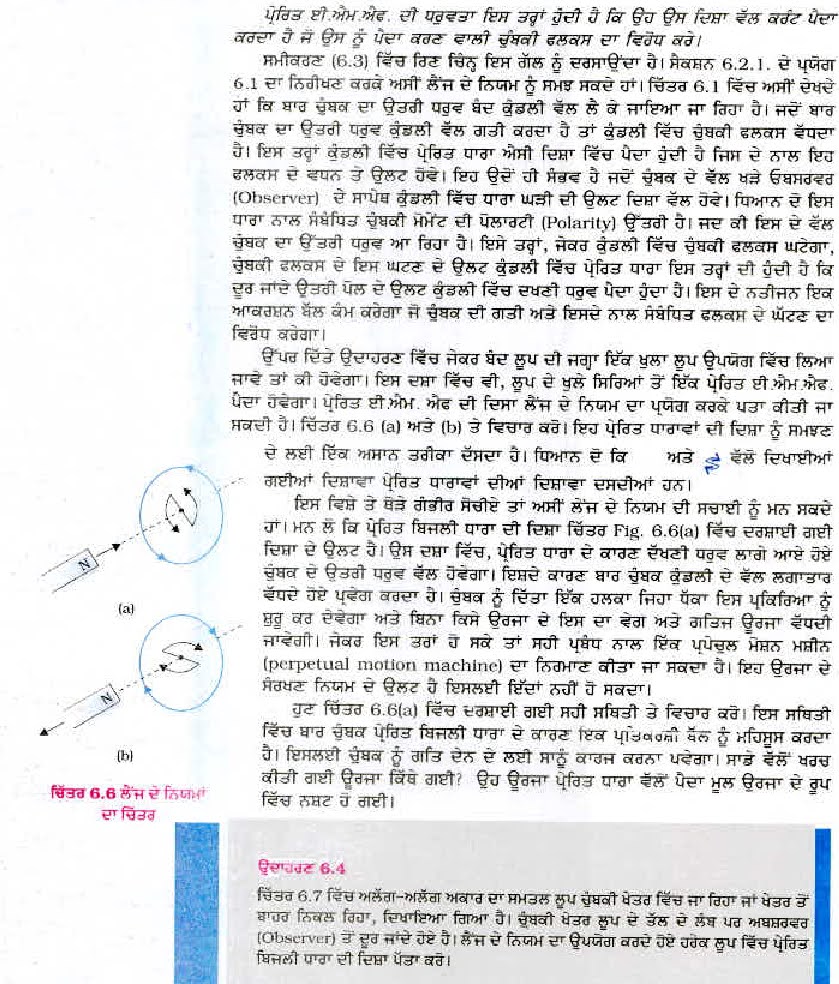 ਪ੍ਰੇਰਿਤ ਈ.ਐਮ.ਐਫ. ਦੀ ਧਰੁਵਤਾ ਇਸ ਤਰ੍ਹਾਂ ਹੁੰਦੀ ਹੈ ਕਿ ਉਹ ਉਸ ਦਿਸ਼ਾ ਵੱਲ ਕਰੰਟ ਪੈਦਾ
ਕਰਦਾ ਹੈ ਜੋ ਉਸ ਨੂੰ ਪੈਦਾ ਕਰਣ ਵਾਲੀ ਚੁੰਬਕੀ ਫਲਕਸ ਦਾ ਵਿਰੋਧ ਕਰੇ।
ਸਮੀਕਰਣ (6.3) ਵਿੱਚ ਰਿਣ ਚਿੰਨ੍ਹ ਇਸ ਗੱਲ ਨੂੰ ਦਰਸਾਉਂਦਾ ਹੈ। ਸੈਕਸ਼ਨ 6.2.1. ਦੇ ਪ੍ਰਯੋਗ
6.1 ਦਾ ਨਿਰੀਖਣ ਕਰਕੇ ਅਸੀਂ ਲੈਂਜ ਦੇ ਨਿਯਮ ਨੂੰ ਸਮਝ ਸਕਦੇ ਹਾਂ। ਚਿੱਤਰ 6.1 ਵਿੱਚ ਅਸੀਂ ਦੇਖਦੇ
ਹਾਂ ਕਿ ਬਾਰ ਚੁੰਬਕ ਦਾ ਉਤਰੀ ਧਰੁਵ ਬੰਦ ਕੁੰਡਲੀ ਵੱਲ ਲੈ ਕੇ ਜਾਇਆ ਜਾ ਰਿਹਾ ਹੈ। ਜਦੋਂ ਬਾਰ
ਚੁੰਬਕ ਦਾ ਉਤਰੀ ਧਰੁਵ ਕੁੰਡਲੀ ਵੱਲ ਗਤੀ ਕਰਦਾ ਹੈ ਤਾਂ ਕੁੰਡਲੀ ਵਿੱਚ ਚੁੰਬਕੀ ਫਲਕਸ ਵੱਧਦਾ
ਹੈ। ਇਸ ਤਰ੍ਹਾਂ ਕੁੰਡਲੀ ਵਿੱਚ ਪ੍ਰੇਰਿਤ ਧਾਰਾ ਐਸੀ ਦਿਸ਼ਾ ਵਿੱਚ ਪੈਦਾ ਹੁੰਦੀ ਹੈ ਜਿਸ ਦੇ ਨਾਲ ਇਹ
ਫਲਕਸ ਦੇ ਵਧਨ ਤੇ ਉਲਟ ਹੋਵੇ। ਇਹ ਉਦੋਂ ਹੀ ਸੰਭਵ ਹੈ ਜਦੋਂ ਚੁੰਬਕ ਦੇ ਵੱਲ ਖੜੇ ਓਬਸਰਵਰ
(Observer) ਦੇ ਸਾਪੇਖ ਕੁੰਡਲੀ ਵਿੱਚ ਧਾਰਾ ਘੜੀ ਦੀ ਉਲਟ ਦਿਸ਼ਾ ਵੱਲ ਹੋਵੇ। ਧਿਆਨ ਦੋ ਇਸ
ਧਾਰਾ ਨਾਲ ਸੰਬੰਧਿਤ ਚੁੰਬਕੀ ਮੋਮੇਂਟ ਦੀ ਪੋਲਾਰਟੀ (Polarity) ਉੱਤਰੀ ਹੈ। ਜਦ ਕੀ ਇਸ ਦੇ ਵੱਲ
ਚੁੰਬਕ ਦਾ ਉੱਤਰੀ ਧਰੁਵ ਆ ਰਿਹਾ ਹੈ। ਇਸੇ ਤਰ੍ਹਾਂ, ਜੇਕਰ ਕੁੰਡਲੀ ਵਿੱਚ ਚੁੰਬਕੀ ਫਲਕਸ ਘਟੇਗਾ,
ਚੁੰਬਕੀ ਫਲਕਸ ਦੇ ਇਸ ਘਟਣ ਦੇ ਉਲਟ ਕੁੰਡਲੀ ਵਿੱਚ ਪ੍ਰੇਰਿਤ ਧਾਰਾ ਇਸ ਤਰ੍ਹਾਂ ਦੀ ਹੁੰਦੀ ਹੈ ਕਿ
ਦੂਰ ਜਾਂਦੇ ਉਤਰੀ ਪੋਲ ਦੇ ਉਲਟ ਕੁੰਡਲੀ ਵਿੱਚ ਦਖਣੀ ਧਰੁਵ ਪੈਦਾ ਹੁੰਦਾ ਹੈ। ਇਸ ਦੇ ਨਤੀਜਨ ਇਕ
ਆਕਰਸ਼ਨ ਬੱਲ ਕੰਮ ਕਰੇਗਾ ਜੋ ਚੁੰਬਕ ਦੀ ਗਤੀ ਅਤੇ ਇਸਦੇ ਨਾਲ ਸੰਬੰਧਿਤ ਫਲਕਸ ਦੇ ਘੱਟਣ ਦਾ
ਵਿਰੋਧ ਕਰੇਗਾ।
ਉੱਪਰ ਦਿੱਤੇ ਉਦਾਹਰਣ ਵਿੱਚ ਜੇਕਰ ਬੰਦ ਲੂਪ ਦੀ ਜਗ੍ਹਾ ਇੱਕ ਖੁਲਾ ਲੂਪ ਉਪਯੋਗ ਵਿੱਚ ਲਿਆ
ਜਾਵੇ ਤਾਂ ਕੀ ਹੋਵੇਗਾ। ਇਸ ਦਸ਼ਾ ਵਿੱਚ ਵੀ, ਲੂਪ ਦੇ ਖੁਲੇ ਸਿਰਿਆਂ ਤੋਂ ਇੱਕ ਪ੍ਰੇਰਿਤ ਈ.ਐਮ.ਐਫ.
ਪੈਦਾ ਹੋਵੇਗਾ। ਪ੍ਰੇਰਿਤ ਈ.ਐਮ. ਐਫ ਦੀ ਦਿਸਾ ਲੈਂਜ ਦੇ ਨਿਯਮ ਦਾ ਪ੍ਰਯੋਗ ਕਰਕੇ ਪਤਾ ਕੀਤੀ ਜਾ
ਸਕਦੀ ਹੈ। ਚਿੱਤਰ 6.6 (a) ਅਤੇ (b) ਤੇ ਵਿਚਾਰ ਕਰੋ। ਇਹ ਪ੍ਰੇਰਿਤ ਧਾਰਾਵਾਂ ਦੀ ਦਿਸ਼ਾ ਨੂੰ ਸਮਝਣ
ਦੇ ਲਈ ਇੱਕ ਅਸਾਨ ਤਰੀਕਾ ਦੱਸਦਾ ਹੈ। ਧਿਆਨ ਦੋ ਕਿ ਅਤੇ ਵੱਲੋਂ ਦਿਖਾਈਆਂ
ਗਈਆਂ ਦਿਸ਼ਾਵਾ ਪ੍ਰੇਰਿਤ ਧਾਰਾਵਾਂ ਦੀਆਂ ਦਿਸ਼ਾਵਾ ਦਸਦੀਆਂ ਹਨ।
ਇਸ ਵਿਸ਼ੇ ਤੇ ਥੋੜੇ ਗੰਭੀਰ ਸੋਚੀਏ ਤਾਂ ਅਸੀਂ ਲੇਂਜ ਦੇ ਨਿਯਮ ਦੀ ਸਚਾਈ ਨੂੰ ਮਨ ਸਕਦੇ
ਹਾਂ। ਮਨ ਲੋ ਕਿ ਪ੍ਰੇਰਿਤ ਬਿਜਲੀ ਧਾਰਾ ਦੀ ਦਿਸ਼ਾ ਚਿੱਤਰ Fig. 6.6(a) ਵਿੱਚ ਦਰਸ਼ਾਈ ਗਈ
ਦਿਸ਼ਾ ਦੇ ਉਲਟ ਹੈ। ਉਸ ਦਸ਼ਾ ਵਿੱਚ, ਪ੍ਰੇਰਿਤ ਧਾਰਾ ਦੇ ਕਾਰਣ ਦੱਖਣੀ ਧਰੁਵ ਲਾਗੇ ਆਏ ਹੋਏ
ਚੁੰਬਕ ਦੇ ਉਤਰੀ ਧਰੁਵ ਵੱਲ ਹੋਵੇਗਾ। ਇਸ਼ਦੇ ਕਾਰਣ ਬਾਰ ਚੁੰਬਕ ਕੁੰਡਲੀ ਦੇ ਵੱਲ ਲਗਾਤਾਰ
ਵੱਧਦੇ ਹੋਏ ਪ੍ਰਵੇਗ ਕਰਦਾ ਹੈ। ਚੁੰਬਕ ਨੂੰ ਦਿੱਤਾ ਇੱਕ ਹਲਕਾ ਜਿਹਾ ਧੱਕਾ ਇਸ ਪ੍ਰਕਿਰਿਆ ਨੂੰ
ਸ਼ੁਰੂ ਕਰ ਦੇਵੇਗਾ ਅਤੇ ਬਿਨਾ ਕਿਸੇ ਉਰਜਾ ਦੇ ਇਸ ਦਾ ਵੇਗ ਅਤੇ ਗਤਿਜ ਊਰਜਾ ਵੱਧਦੀ
ਜਾਵੇਗੀ। ਜੇਕਰ ਇਸ ਤਰਾਂ ਹੋ ਸਕੇ ਤਾਂ ਸਹੀ ਪ੍ਰਬੰਧ ਨਾਲ ਇੱਕ ਪ੍ਰਪੇਚੁਲ ਮੋਸ਼ਨ ਮਸ਼ੀਨ
(perpetual motion machine) ਦਾ ਨਿਰਮਾਣ ਕੀਤਾ ਜਾ ਸਕਦਾ ਹੈ। ਇਹ ਉਰਜਾ ਦੇ
ਸੰਰਖਣ ਨਿਯਮ ਦੇ ਉਲਟ ਹੈ ਇਸਲਈ ਇੱਦਾਂ ਨਹੀਂ ਹੋ ਸਕਦਾ।
ਹੁਣ ਚਿੱਤਰ 6.6(a) ਵਿੱਚ ਦਰਸ਼ਾਈ ਗਈ ਸਹੀ ਸਥਿਤੀ ਤੇ ਵਿਚਾਰ ਕਰੋ। ਇਸ ਸਥਿਤੀ
ਵਿੱਚ ਬਾਰ ਚੁੰਬਕ ਪ੍ਰੇਰਿਤ ਬਿਜਲੀ ਧਾਰਾ ਦੇ ਕਾਰਣ ਇਕ ਬੱਲ ਨੂੰ ਮਹਿਸੂਸ ਕਰਦਾ
ਹੈ। ਇਸਲਈ ਚੁੰਬਕ ਨੂੰ ਗਤਿ ਦੇਨ ਦੇ ਲਈ ਸਾਨੂੰ ਕਾਰਜ ਕਰਨਾ ਪਵੇਗਾ। ਸਾਡੇ ਵੱਲੋਂ ਖਰਚ
ਕੀਤੀ ਗਈ ਊਰਜਾ ਕਿੱਥੇ ਗਈ? ਉਹ ਉਰਜਾ ਪ੍ਰੇਰਿਤ ਧਾਰਾ ਵੱਲੋਂ ਪੈਦਾ ਮੂਲ ਉਰਜਾ ਦੇ ਰੂਪ
ਵਿੱਚ ਨਸ਼ਟ ਹੋ ਗਈ।
N
(a)
N
(b)
ਚਿੱਤਰ 6.6 ਲੈਂਜ ਦੇ ਨਿਯਮਾਂ
ਦਾ ਚਿੱਤਰ
ਉਦਾਹਰਣ 6.4
ਚਿੱਤਰ 6.7 ਵਿੱਚ ਅਲੱਗ-ਅਲੱਗ ਅਕਾਰ ਦਾ ਸਮਤਲ ਲੂਪ ਚੁੰਬਕੀ ਖੇਤਰ ਵਿੱਚ ਜਾ ਰਿਹਾ ਜਾਂ ਖੇਤਰ ਤੋਂ
ਬਾਹਰ ਨਿਕਲ ਰਿਹਾ, ਦਿਖਾਇਆ ਗਿਆ ਹੈ। ਚੁੰਬਕੀ ਖੇਤਰ ਲੂਪ ਦੇ ਤੱਲ ਦੇ ਲੰਬ ਪਰ ਅਬਸ਼ਰਵਰ
(Observer) ਤੋਂ ਦੂਰ ਜਾਂਦੇ ਹੋਏ ਹੈ। ਲੈਂਜ ਦੇ ਨਿਯਮ ਦਾ ਉਪਯੋਗ ਕਰਦੇ ਹੋਏ ਹਰੇਕ ਲੂਪ ਵਿੱਚ ਪ੍ਰੇਰਿਤ
ਬਿਜਲੀ ਧਾਰਾ ਦੀ ਦਿਸ਼ਾ ਪੱਤਾ ਕਰੋ।